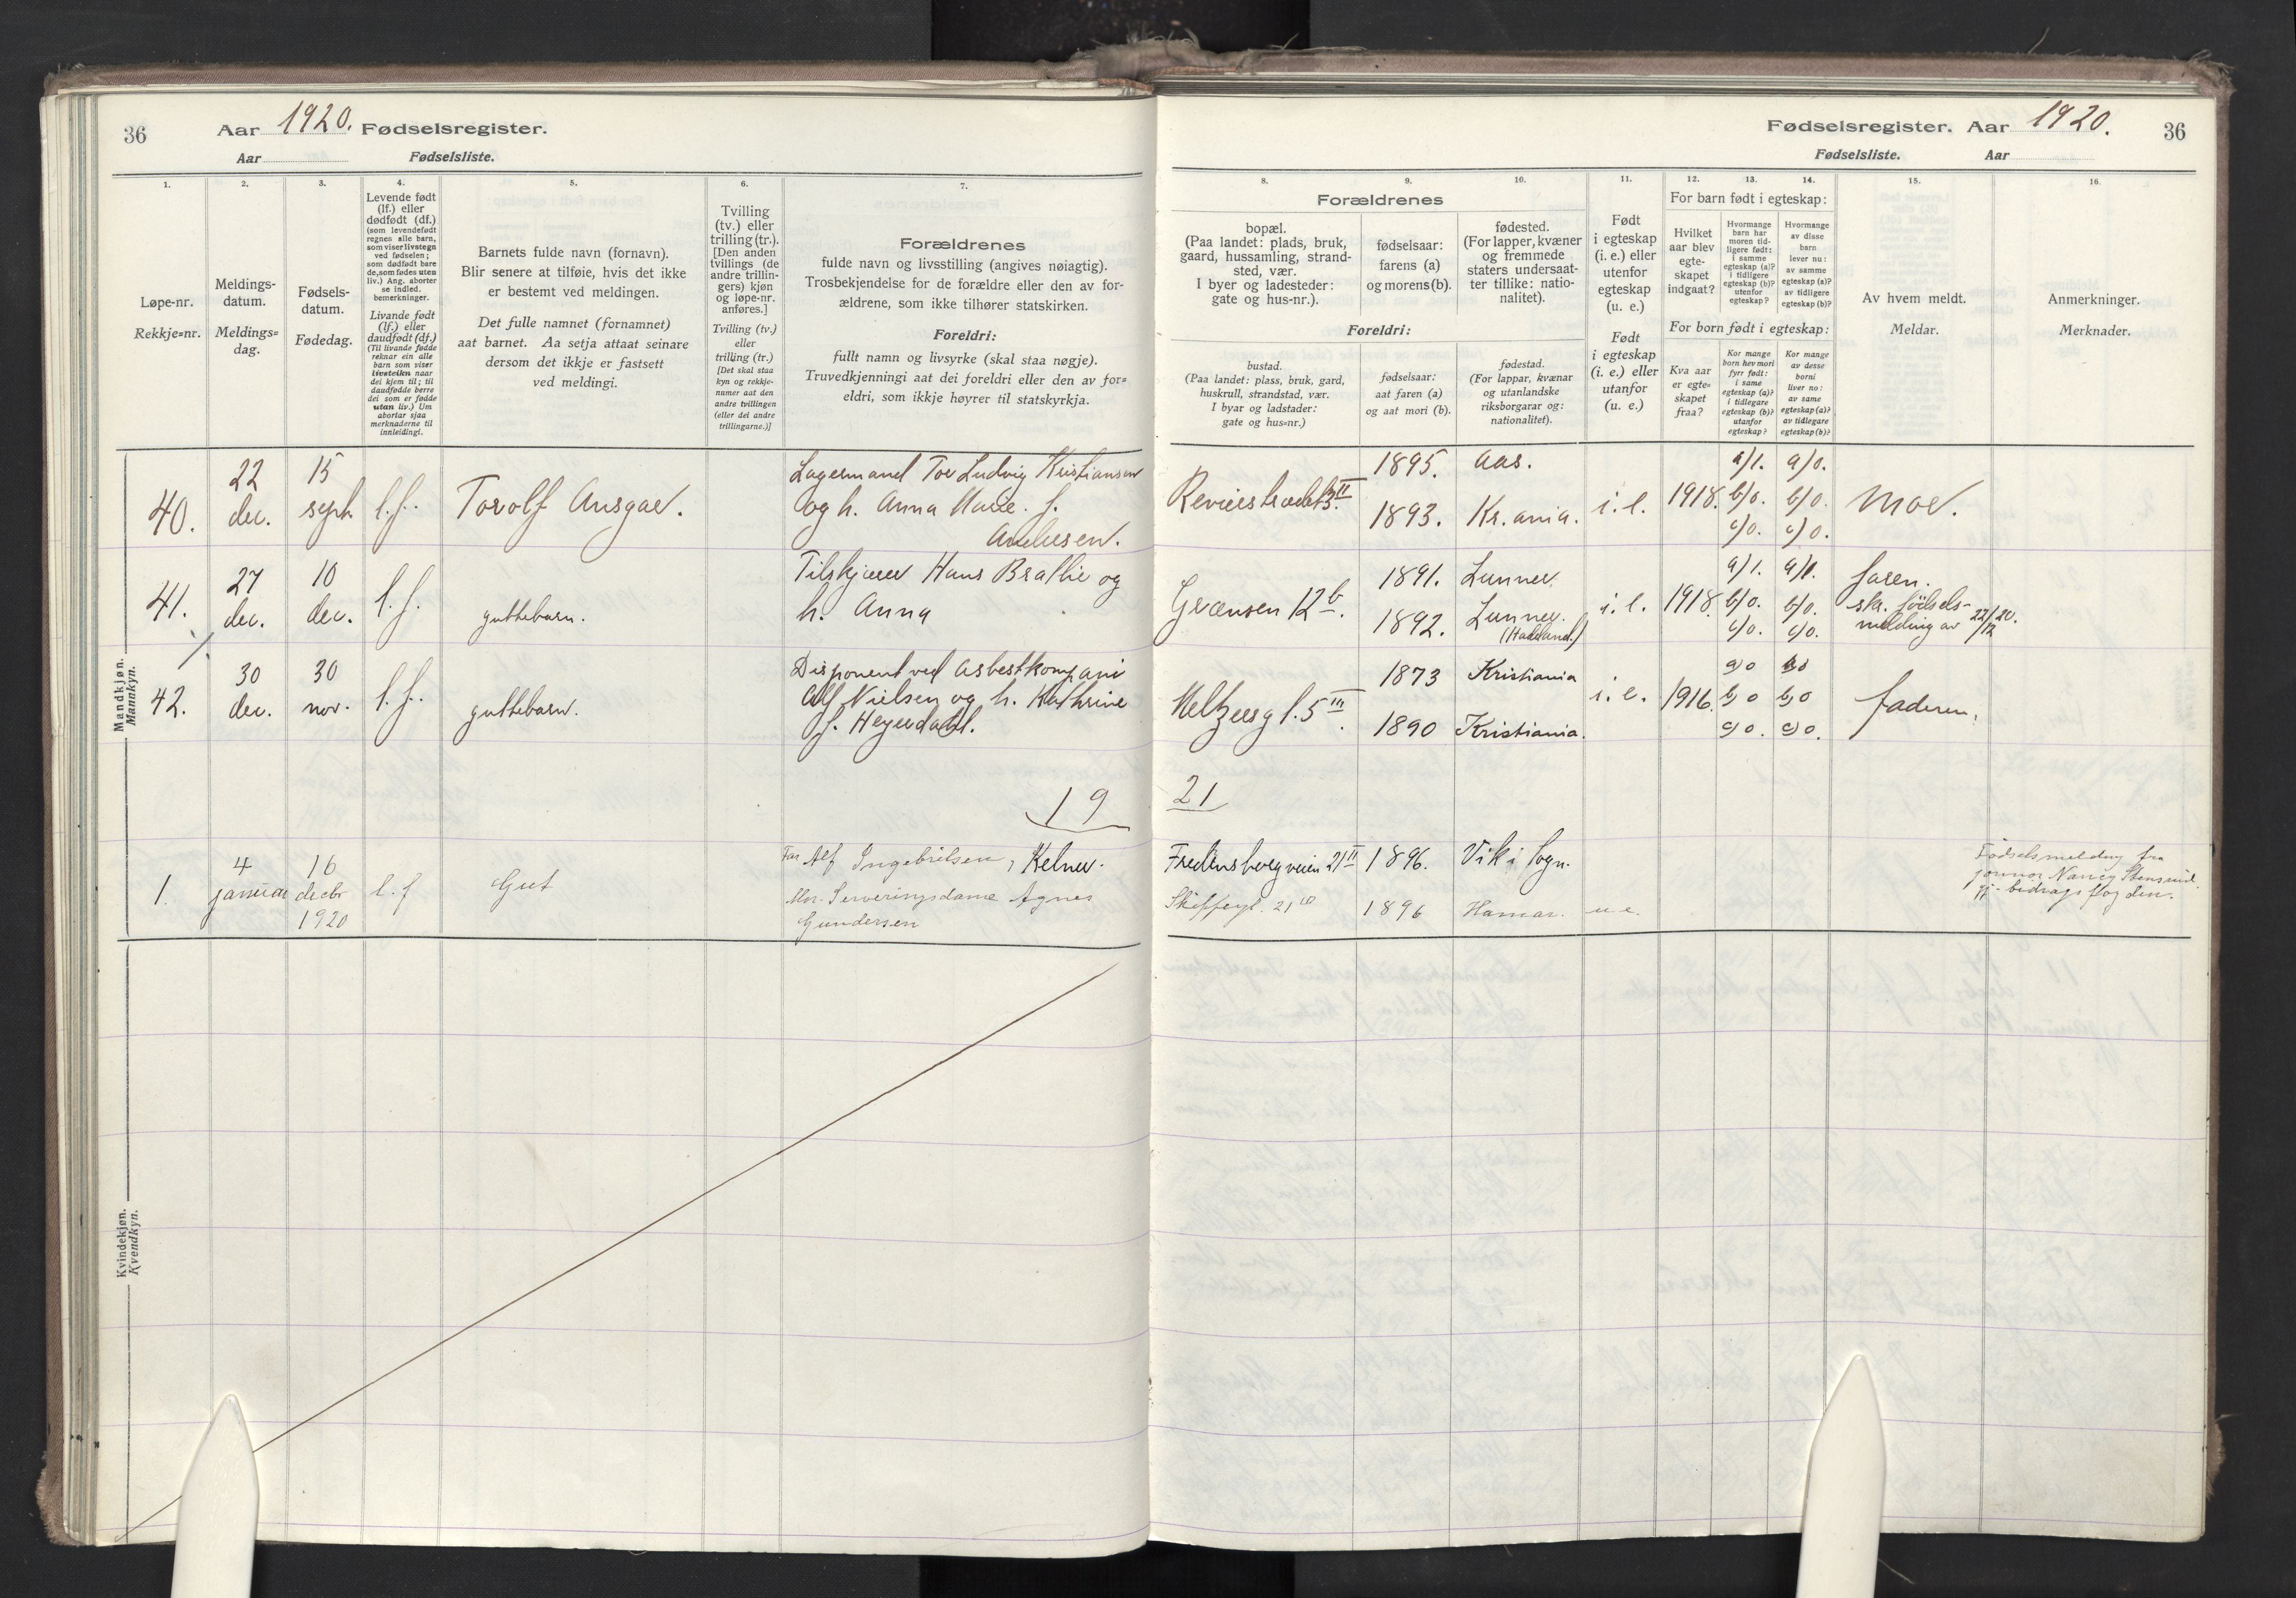 36
Aar 1920. Fødselsregister.
Aar Fødselsliste.
1.
Løpe-nr.
Rekkje=nr.
2.
Meldings-
datum.
Meldings=
dag.
3.
Fødsels-
datum.
Fødedag.
4.
Levende født
(lf.) eller
dødfødt (df.)
(som levendefødt
regnes alle barn,
som viser livstegn
ved fødselen;
som dødfødt bare
de, som fødes uten
liv.) Ang. aborter
se indled.
bemerkninger.
Livande født
(lf.) eller
daudfødt (df.)
(Til livande fødde
reknar ein alle
barn som viser
livsteikn naar
dei kjem til; til
daudfødde berre
dei som er fødde
utan liv.) Um
abortar sjaa
merknaderne til
innleidingi.
5.
Barnets fulde navn (fornavn).
Blir senere at tilføie, hvis det ikke
er bestemt ved meldingen.
Det fulle namnet (fornamnet)
aat barnet. Aa setja attaat seinare
dersom det ikkje er fastsett
ved meldingi.
6.
Tvilling
(tv.) eller
trilling (tr.).
[Den anden
tvillings (de
andre trillin-
gers) kjøn
og løpe-nr.
anføres.]
Tvilling (tv.)
eller
trilling (tr.)
[Det skal staa
kyn og rekkje-
numer aat den
andre tvillingen
(eller dei andre
trillingarne.)]
7.
Forældrenes
fulde navn og livsstilling (angives nøiagtig).
Trosbekjendelse for de forældre eller den av for-
ældrene, som ikke tilhører statskirken.
Foreldri:
fullt namn og livsyrke (skal staa nøgje).
Truvedkjenningi aat dei foreldri eller den av for=
eldri, som ikkje høyrer til statskyrkja.
Mandkjøn.
Mannkyn.
40.
22
dec.
15
sept.
l.f.
Torolf Ansgar.
Lagermand Tor Ludvig Kristiansen
og h. Anna Marie. f.
Andersen.
41.
27
dec.
10
dec.
l.f.
guttebarn.
Tilskjærer Hans Brathe og
h. Anna
42.
30
dec.
30
nov.
l.f.
guttebarn.
Disponent ved Asbestkompani
Alf Nielsen og h. Kathrine
f. Heyerdahl.
19
1.
4
januar
16
decbr
1920
l.f
Gut
Far Alf Ingebrigtsen, Kelner.
Mor. Serveringsdame Agnes
Gundersen
Kvindekjøn.
Kvendkyn.
Fødselsregister. Aar 1920.
36
Fødselsliste. Aar
8.
Forældrenes
bopæl.
(Paa landet: plads, bruk,
gaard, hussamling, strand-
sted, vær.
I byer og ladesteder:
gate og hus-nr.).
Foreldri:
bustad.
(Paa landet: plass, bruk, gard,
huskrull, strandstad, vær.
I byar og ladstader:
gate og hus=nr.)
9.
fødselsaar:
farens (a)
og morens (b).
fødselsaar:
aat faren (a)
og aat mori (b).
10.
fødested.
(For lapper, kvæner
og fremmede
staters undersaat-
ter tillike: natio-
nalitet).
fødestad.
(For lappar, kvænar
og utanlandske
riksborgarar og:
nationalitet).
11.
Født
i egteskap
(i. e.) eller
utenfor
egteskap
(u. e.)
Født
i egteskap
(i. e.) eller
utanfor
(u. e.)
12.
13.
14.
For barn født i egteskap:
Hvilket
aar blev
egte-
skapet
indgaat?
Hvormange
barn har
moren tid-
ligere født:
i samme
egteskap (a)?
i tidligere
egteskap (b)?
utenfor
egteskap?
Hvormange
av disse
barn
lever nu:
av samme
egteskap (a)?
av tidligere
egteskap (b)?
For born født i egteskap:
Kva aar
er egte=
skapet
fraa?
Kor mange
born hev mori
fyrr født:
i same
egteskap (a)?
i tidlegare
egteskap (b)?
utanfor
egteskap?
Kor mange
av desse
borni
liver no:
av same
egteskap (a)?
av tidlegare
egteskap (b)?
15.
Av hvem meldt.
Meldar.
16.
Anmerkninger.
Merknader.
1895.
1893.
Aas.
Kr.ania.
i. e.
1918.
a/1.
b/o.
c/o.
a/o.
b/o.
c/o.
Mor.
Grænsen 12 b.
1891.
1892.
Lunner.
Lunner.
(Hadeland.)
i. e.
1918
a/1.
b/o.
c/o.
a/1.
b/o.
c/o.
faren.
skr. fødsels-
melding av 22/12 20.
Meltzersg t. 5 III.
1873
1890
Kristiania
Kristiania.
i. e.
1916.
a) o
b) o
c) o.
b) o
c) o.
faderen.
21
Fredensborgveien 21 II
Skippergt. 21
1896.
1896
Vik i Sogn.
Hamar.
u e.
Fødselsmelding fra
jormor Nancy Stensrud
gj. bidragsfogden.